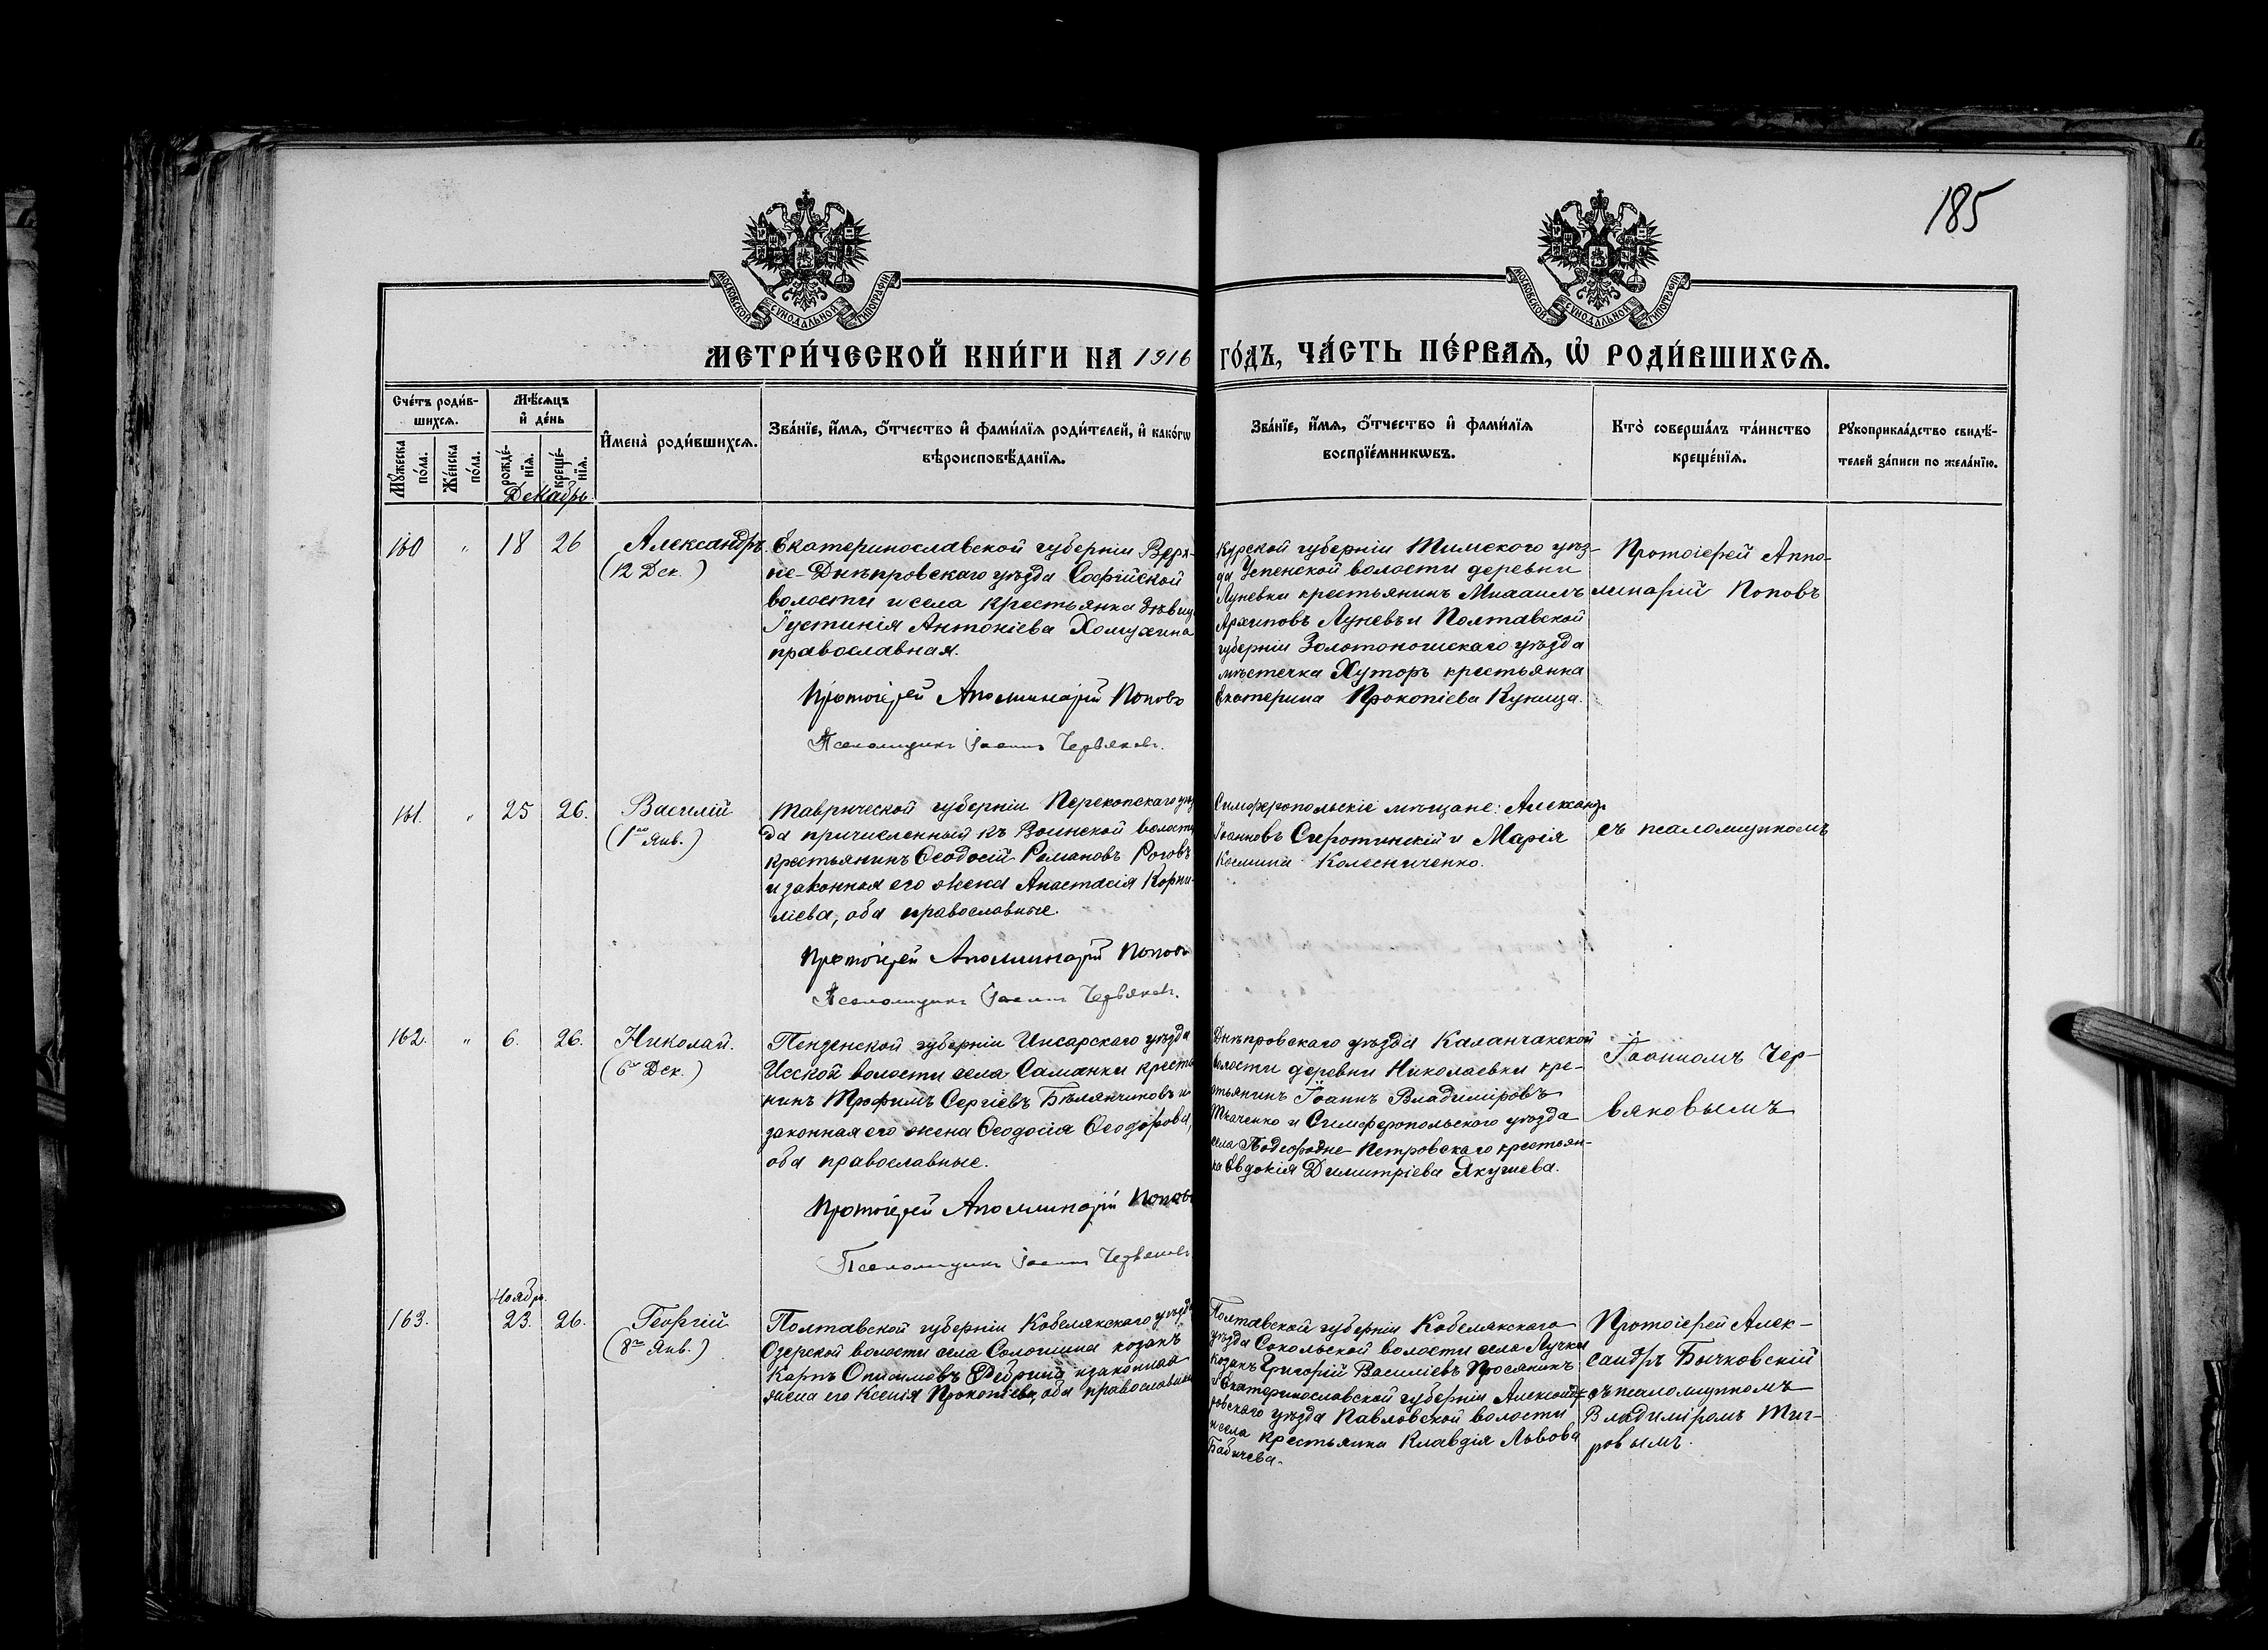 185
МОСКОВСКОЙ СѴНОДАЛЬНОЙ ТИПОГРАФІИ
МОСКОВСКОЙ СѴНОДАЛЬНОЙ ТИПОГРАФІИ
МЕТРИ́ЧЕСКОЙ КНИ́ГИ НА 1916 ГО́ДЪ, ЧА́СТЬ ПЕ́РВАѦ, Ѡ҆ РОДИ́ВШИХСѦ.
Сче́тъ роди́в-
шихсѧ.
Мꙋ́жеска по́ла.
Же́нска по́ла.
Мѣ́сѧцъ
и҆ де́нь
рожде́-нїѧ.
креще́-нїѧ.
Декабрь
И҆мена̀ роди́вшихсѧ.
Зва́нїе, и҆́мѧ, ѻ҆́тчество и҆ фами́лїѧ роди́телей, и҆ како́гѡ
вѣроисповѣ́данїѧ.
Зва́нїе, и҆́мѧ, ѻ҆́тчество и҆ фами́лїѧ
воспрїе́мникѡвъ.
Кто̀ соверша́лъ та́инство
креще́нїѧ.
Рꙋкоприкла́дство свидѣ́-
телей за́писи по жела́нїю.
160 " 18 26
Александръ.
(12 Дек.)
Екатеринославской губерніи Верх-
не-Днѣпровскаго уѣзда Софійской
волости и села крестьянка дѣвица
Іустинія Антоніева Хомухина
православная.
Протоіерей Аполлинарій Поповъ
Псаломщикъ Іоаннъ Червяковъ.
Курской губерніи Тимского уѣз-
да Успенской волости деревни
Луневки крестьянинъ Михаилъ
Архиповъ Луневъ и Полтавской
губерніи Золотоношскаго уѣзда
мѣстечка Хуторъ крестьянка
Екатерина Прокопіева Куница.
Протоіерей Аппо-
линарій Поповъ
161. " 25 26.
Василій
(1го Янв.)
Таврической губерніи Перекопскаго уѣз
да причисленный къ Воинской волости
крестьянинъ Ѳеодосій Романовъ Роговъ
и законная его жена Анастасія Корни-
ліева, оба православные.
Протоіерей Аполлинарій Поповъ
Псаломщикъ Іоаннъ Червяковъ.
Симферопольскіе мѣщане: Александръ
Іоанновъ Сиротинскій и Марія
Космина Колесниченко.
съ псаломщикомъ
162. " 6. 26.
Николай.
(6го Дек.)
Пензенской губерніи Инсарскаго уѣзда
Исской волости села Саманки крестья
нинъ Трофимъ Сергіевъ Бѣлянчиковъ и
законная его жена Ѳеодосія Ѳеодорова,
оба православные.
Протоіерей Аполлинарій Поповъ
Псаломщикъ Іоаннъ Червяковъ
Днѣпровскаго уѣзда Каланчакской
волости деревни Николаевки кре-
стьянинъ Іоаннъ Владиміровъ
Ткаченко и Симферопольскаго уѣзда
села Подгородне-Петровскаго крестьян-
ка Евдокія Димитріева Якушева.
Іоанномъ Чер-
вяковымъ
Ноябрь.
163. 23. 26.
Георгій
(8го Янв.)
Полтавской губерніи Кобелякскаго уѣзда
Озерской волости села Солошина козакъ
Карпъ Онисимовъ и законная
жена его Ксенія Прокопіева, оба православные
Полтавской губерніи Кобелякскаго
уѣзда Сокольской волости села Лучки
козакъ Григорій Василіевъ Просяникъ
и Екатеринославской губерніи Александ-
ровскаго уѣзда Павловской волости
и села крестьянка Клавдія Львова
Бабичева.
Протоіерей Алек-
сандръ Бычковскій
съ псаломщикомъ
Владиміромъ Тиг-
ровымъ.